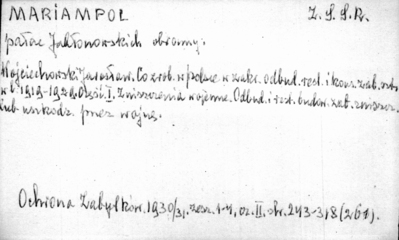 MARIAMPOL Z.S.S.R.
pałac Jabłonowskich obramy.
Wojciechowski Jarosław. Co zrob. w Polsce w zakr. odbud. rest. i kons. zab. arch.
w l. 1919-1929. Część I. Zniszczenia wojenne. Odbud. i rest. budow. zab. zniszcz.
lub uszkodz. przez wojnę.
Ochrona Zabytków. 1930/31. zesz. 1-4, cz. II. str. 243-318 (261).